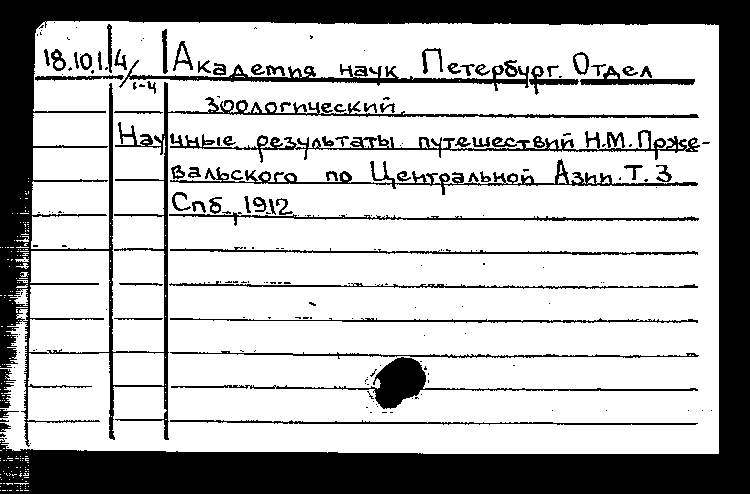 18.10.1.4/1-4 Академия наук. Петербург. Отдел
зоологический.
Научные результаты путешествий Н.М. Прже-
вальского по Центральной Азии. Т. 3
Спб., 1912